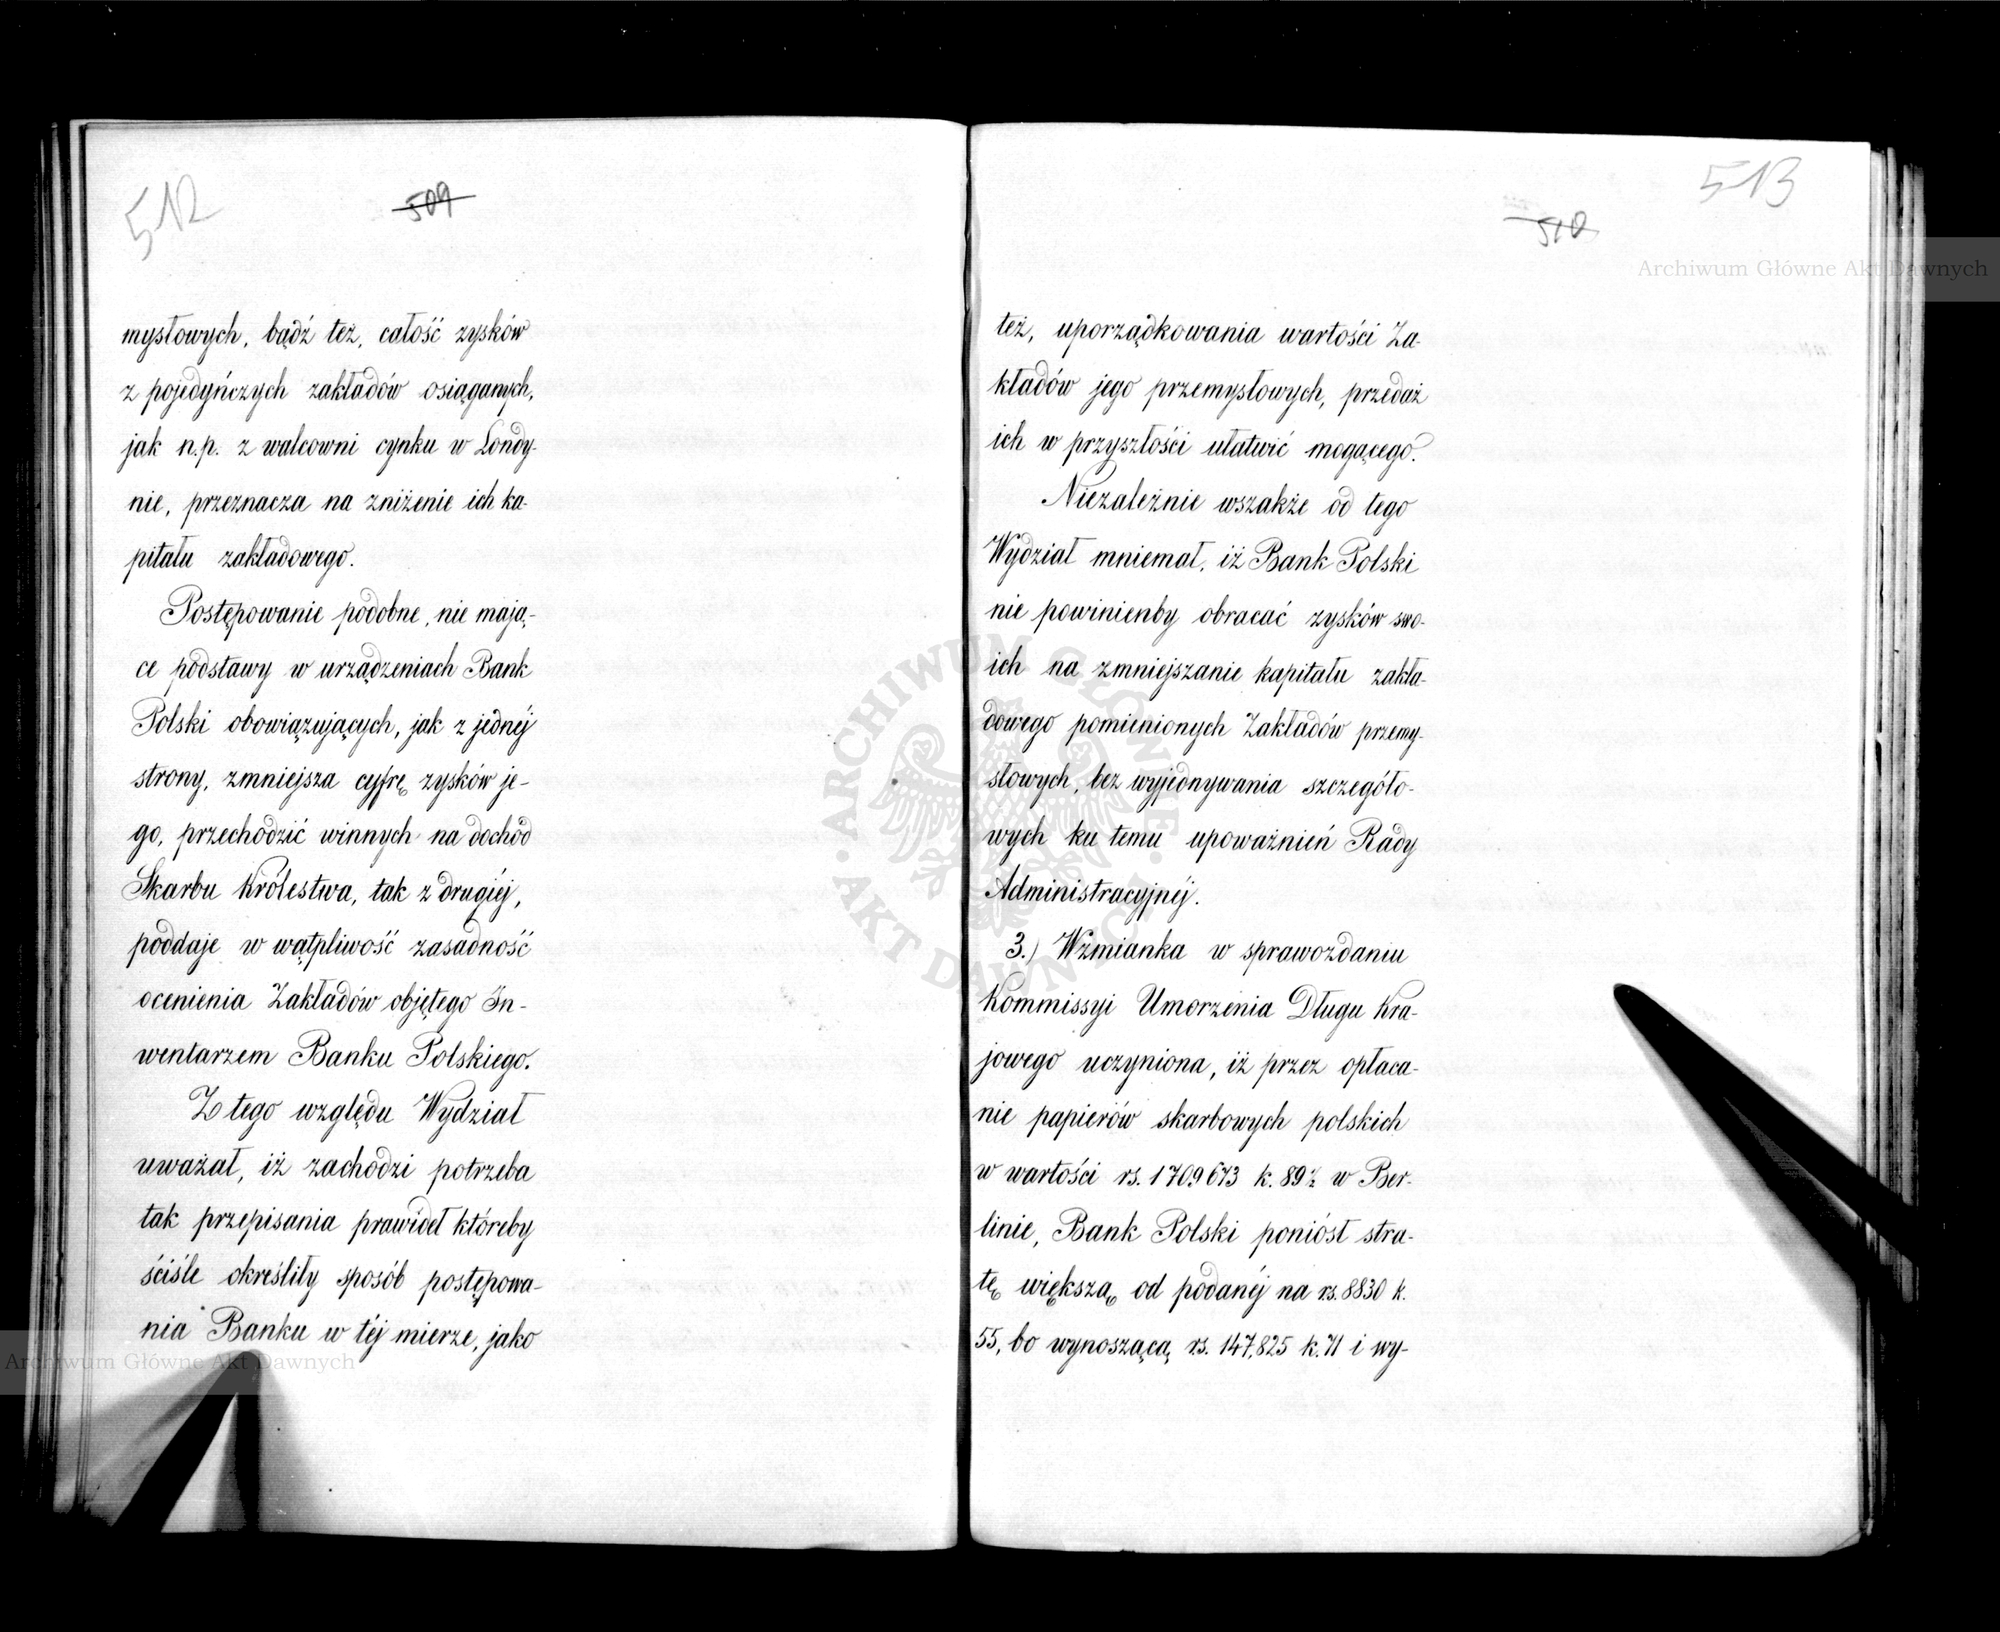 512
509
mysłowych, bądź też, całość zysków
z pojedyńczych zakładów osiąganych,
jak n.p. z walcowni cynku w Londy-
nie, przeznacza na zniżenie ich ka-
pitału zakładowego.
Postępowanie podobne, nie mają-
ce podstawy w urządzeniach Bank
Polski obowiązujących, jak z jednéj
strony, zmniejsza cyfrę zysków je-
go, przechodzić winnych na dochód
Skarbu Królestwa, tak z drugiéj,
poddaje w wątpliwość zasadność
ocenienia Zakładów objętego In-
wentarzem Banku Polskiego.
Z tego względu Wydział
uważał, iż zachodzi potrzeba
tak przepisania prawideł któreby
ściśle określiły sposób postępowa-
nia Banku w téj mierze, jako
513
510
też, uporządkowania wartości Za-
kładów jego przemysłowych, przedaż
ich w przyszłości ułatwić mogącego.
Niezależnie wszakże od tego
Wydział mniemał, iż Bank Polski
nie powinienby obracać zysków swo-
ich na zmniejszanie kapitału zakła-
dowego pomienionych Zakładów przemy-
słowych, bez wyjednywania szczegóło-
wych ku temu upoważnień Rady
Administracyjnéj.
3.) Wzmianka w sprawozdaniu
Kommissyi Umorzenia Długu Kra-
jowego uczyniona, iż przez opłaca-
nie papierów skarbowych polskich
w wartości rs. 1709673 k. 89½ w Ber-
linie, Bank Polski poniósł stra-
tę większą od podanéj na rs. 8830 k.
55, bo wynoszącą rs. 147,825 k. 71 i wy-
Archiwum Główne Akt Dawnych
Archiwum Główne Akt Dawnych
ARCHIWUM GŁÓWNE AKT DAWNYCH